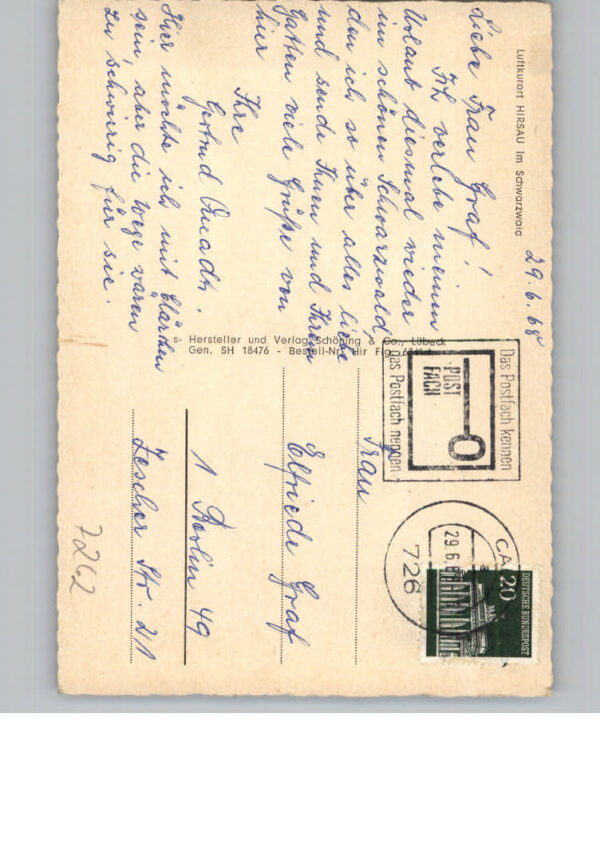 Luftkurort HIRSAU im Schwarzwald
29.6.68
Liebe Frau Graf!
Ich verlebe meinen
Urlaub diesmal wieder
im schönen Schwarzwald,
den ich so über alles liebe
und sende Ihnen und Ihrem
Gatten viele Grüße von
hier
Ihre
Gertrud Quadt.
Hier möchte ich mit Clärchen
sein, aber die Wege wären
zu schwierig für sie.
Hersteller und Verlag Schöning & Co., Lübeck
Gen. SH 18476 - Bestell-Nr. Hir
Das Postfach kennen
POST
FACH
Das Postfach nennen
29.6.68
726
20
DEUTSCHE BUNDESPOST
Frau
Elfriede Graf
1 Berlin 49
Zescher Str. 21
7262